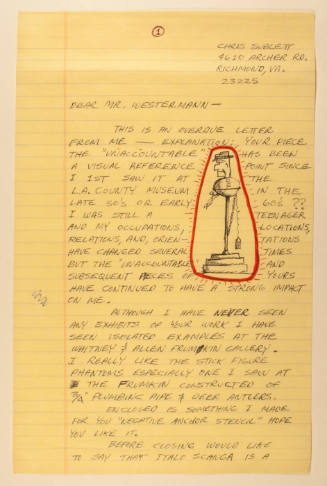 1
CHRIS SUBLETT
4610 ARCHER RD.
RICHMOND, VA.
23225
DEAR MR. WESTERMANN —
THIS IS AN OVERDUE LETTER
FROM ME — EXPLANATION: YOUR PIECE
THE "UNACCOUNTABLE HAS BEEN
A VISUAL REFERENCE POINT SINCE
I 1ST SAW IT AT THE
L.A. COUNTY MUSEUM IN THE
LATE 50'S OR EARLY 60'S ??
I WAS STILL A TEENAGER
AND MY OCCUPATIONS, LOCATIONS,
RELATIONS, AND, ORIEN- TATIONS
HAVE CHANGED SEVERAL TIMES
BUT THE "UNACCOUNTABLE AND
SUBSEQUENT PIECES OF YOURS
HAVE CONTINUED TO HAVE A STRONG IMPACT
ON ME.
ALTHOUGH I HAVE NEVER SEEN
ANY EXHIBITS OF YOUR WORK I HAVE
SEEN ISOLATED EXAMPLES AT THE
WHITNEY & ALLEN FRUMKIN GALLERY.
I REALLY LIKE THE STICK FIGURE
PHANTOMS ESPECIALLY ONE I SAW AT
THE FRUMKIN CONSTRUCTED OF
3/4" PLUMBING PIPE & DEER ANTLERS.
ENCLOSED IS SOMETHING I MADE
FOR YOU "NEGATIVE ANCHOR STENCIL" HOPE
YOU LIKE IT.
BEFORE CLOSING WOULD LIKE
TO SAY THAT ITALO SCANGA IS A